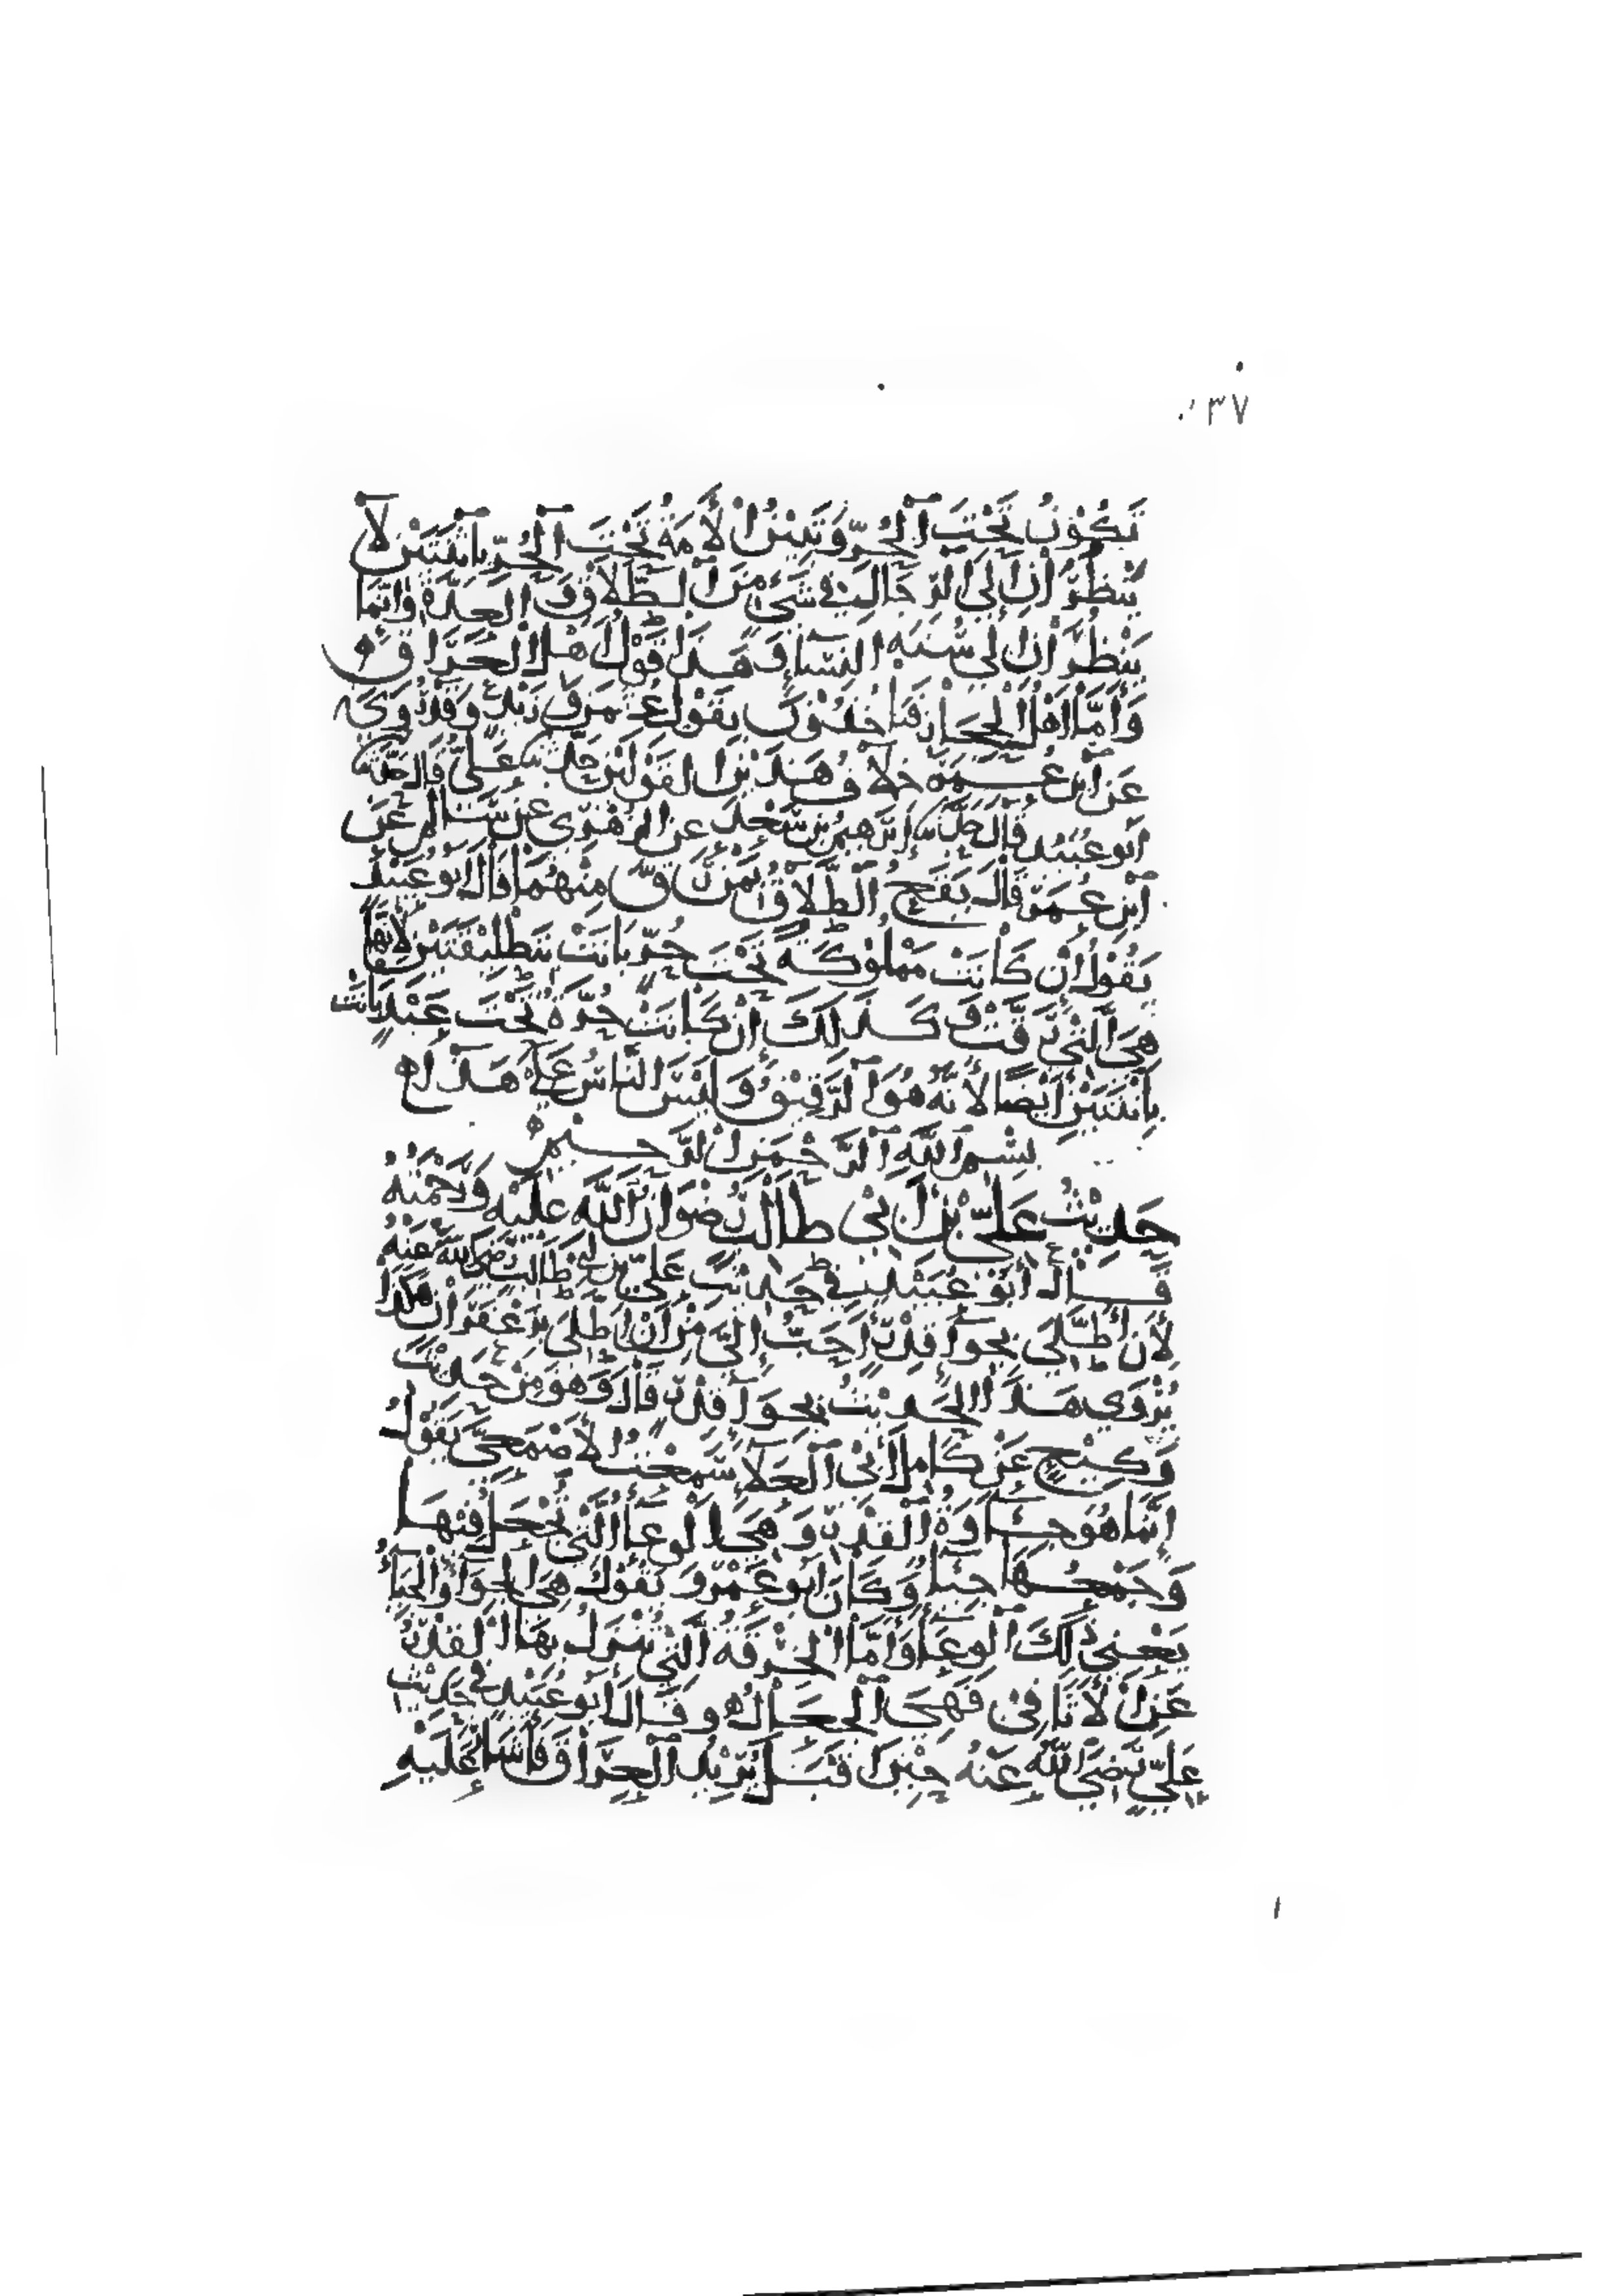 ٣٧
تَكُوْنُ تَحْتَ الْحُرِّ وَتَبِيْنُ الْأَمَةُ تَحْتَ الْحُرِّ بِاثْنَتَيْنِ لَا
يَنْظُرُوْنَ إِلَى الرِّجَالِ فِي شَيْءٍ مِنَ الطَّلَاقِ وَالْعِدَّةِ وَإِنَّمَا
يَنْظُرُوْنَ إِلَى سُنَّةِ النِّسَاءِ وَهَذَا قَوْلُ أَهْلِ الْعِرَاقِ
وَأَمَّا أَهْلُ الْحِجَازِ فَيَأْخُذُوْنَ بِقَوْلِ عُثْمَانَ وَزَيْدٍ وَقَدْ رُوِيَ
عَنِ ابْنِ عُمَرَ خِلَافُ هَذَيْنِ الْقَوْلَيْنِ حَدَّثَنَا عَلِيٌّ قَالَ حَدَّثَنَا
أَبُو عُبَيْدٍ قَالَ حَدَّثَنَا إِبْرَهِيمُ بْنُ سَعْدٍ عَنِ الزُّهْرِيِّ عَنْ سَالِمٍ عَنِ
ابْنِ عُمَرَ قَالَ يَقَعُ الطَّلَاقُ بِمَنْ رَقَّ مِنْهُمَا قَالَ أَبُو عُبَيْدٍ
يَقُوْلُ إِنْ كَانَتْ مَمْلُوْكَةً تَحْتَ حُرٍّ بَانَتْ بِتَطْلِيْقَتَيْنِ لِأَنَّهَا
هِيَ الَّتِيْ رَقَّتْ وَكَذَلِكَ إِنْ كَانَتْ حُرَّةً تَحْتَ عَبْدٍ بَانَتْ
بِاثْنَتَيْنِ أَيْضًا لِأَنَّهُ هُوَ الرَّقِيْقُ وَلَيْسَ النَّاسُ عَلَى هَذَا
بِسْمِ اللَّهِ الرَّحْمَنِ الرَّحِيْمِ
حَدِيْثُ عَلِيِّ بْنِ أَبِيْ طَالِبٍ رِضْوَانُ اللَّهِ عَلَيْهِ وَرَحْمَتُهُ
قَالَ أَبُوْ عُبَيْدٍ فِي حَدِيْثِ عَلِيِّ بْنِ أَبِي طَالِبٍ رَضِيَ اللَّهُ عَنْهُ
لَأَنْ أَطَّلِيَ بِجِوَاءِ قِدْرٍ أَحَبُّ إِلَيَّ مِنْ أَنْ أَطَّلِيَ بِزَعْفَرَانٍ هَكَذَا
يُرْوَى هَذَا الْحَدِيْثُ بِجِوَاءِ قِدْرٍ قَالَ وَهُوَ مِنْ حَدِيْثِ
وَكِيْعٍ عَنْ كَامِلٍ أَبِي الْعَلَاءِ سَمِعْتُ الْأَصْمَعِيَّ يَقُوْلُ
إِنَّمَا هُوَ جِئَاوَةُ الْقِدْرِ وَهِيَ الْوِعَاءُ الَّتِيْ تُجْعَلُ فِيْهَا
وَجَمْعُهَا جِيَاءٌ وَكَانَ أَبُوْ عَمْرٍو يَقُوْلُ هِيَ الْجِوَاءُ وَالْجِيَاءُ
يَعْنِيْ ذٰلِكَ الْوِعَاءَ وَأَمَّا الْخِرْقَةُ الَّتِيْ تُنْزَلُ بِهَا الْقِدْرُ
عَنِ الْأَثَافِيْ فَهِيَ الْجِعَالُ وَقَالَ أَبُوْ عُبَيْدٍ فِي حَدِيْثِ
عَلِيٍّ رَضِيَ اللَّهُ عَنْهُ حِيْنَ أَقْبَلَ يُرِيْدُ الْعِرَاقَ فَأَشَارَ عَلَيْهِ